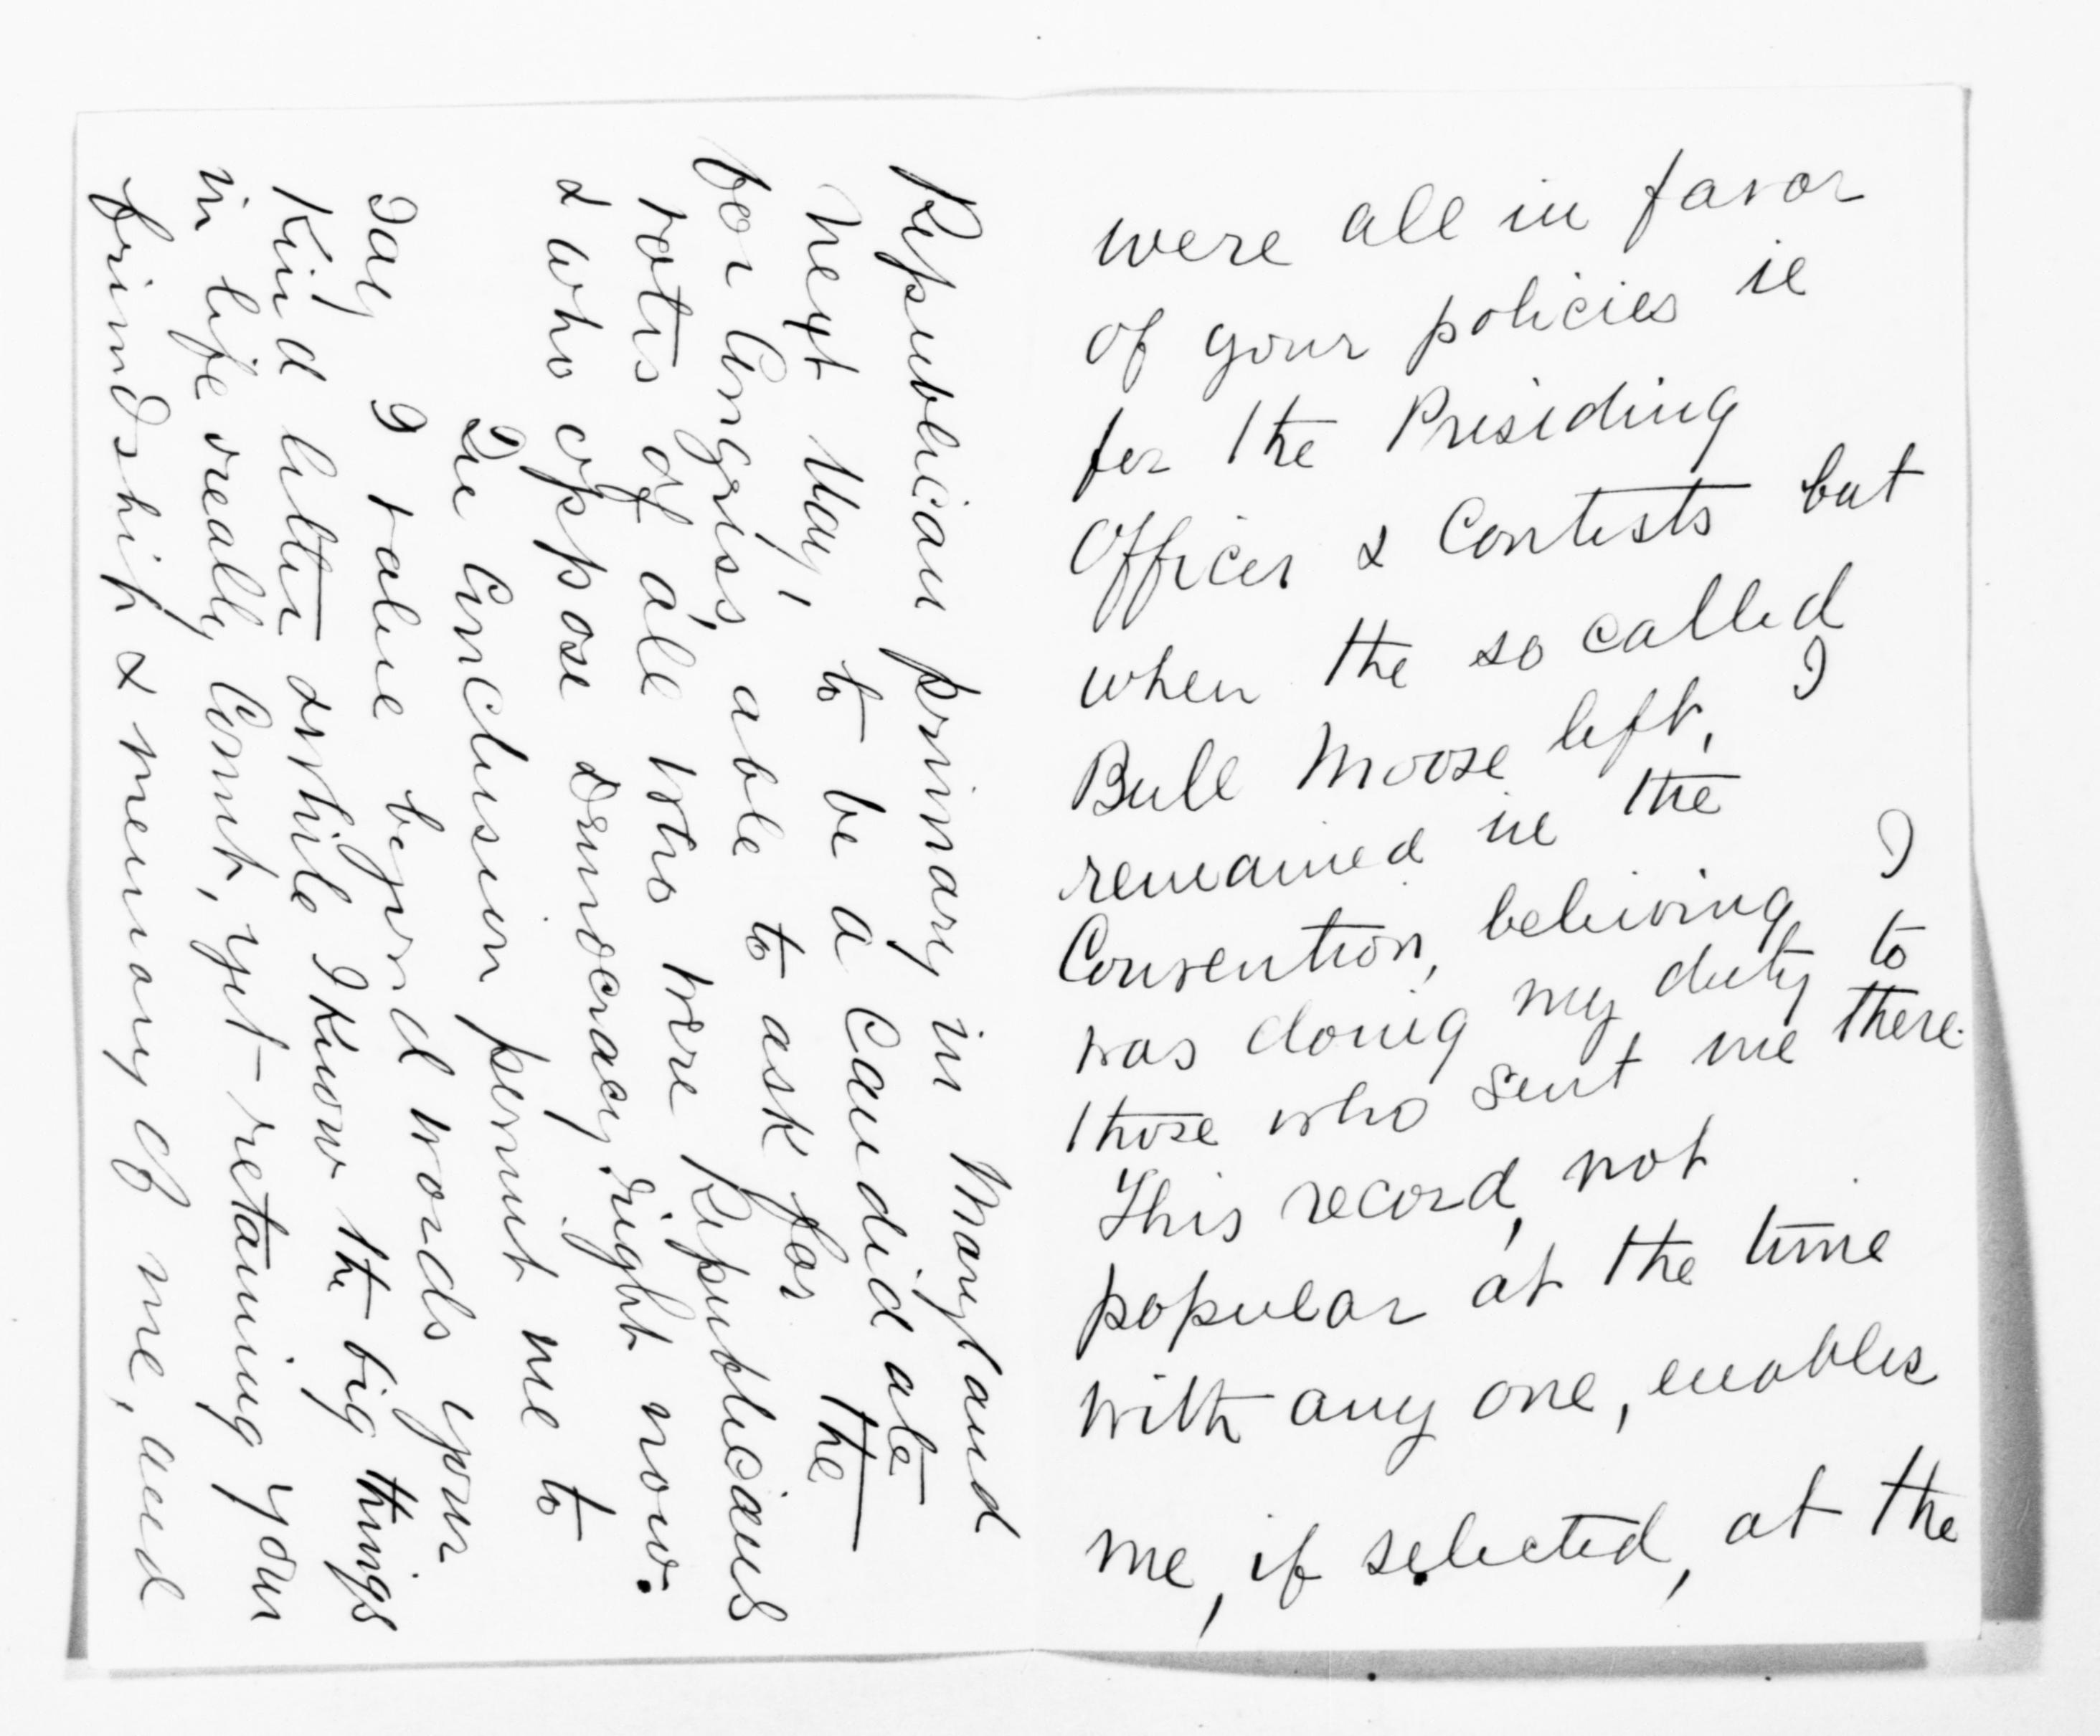 were all in favor
of your policies ie
for the Presiding
Officer & Contests but
when the so called
Bull Moose left, I
remained in the
Convention, believing I
was doing my duty to
those who sent me there.
This record, not
popular at the time
with any one, enables
me, if selected, at the
Republican primary in Maryland
next May, to be a Candidate
for Congress, able to ask for the
votes of all who were Republicans
& who oppose Democracy right now.
In conclusion permit me to
say I value beyond words your
kind letter & while I know the big things
in life really count, yet retaining your
friendship & memory of me, and